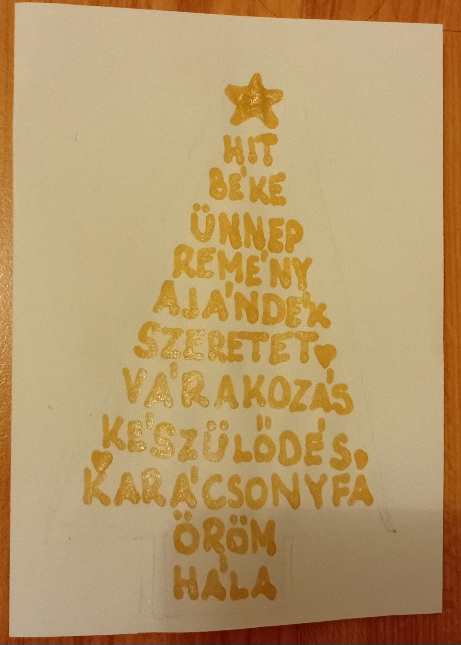 HIT
BÉKE
ÜNNEP
REMÉNY
AJÁNDÉK
SZERETET
VÁRAKOZÁS
KÉSZÜLŐDÉS
KARÁCSONYFA
ÖRÖM
HÁLA